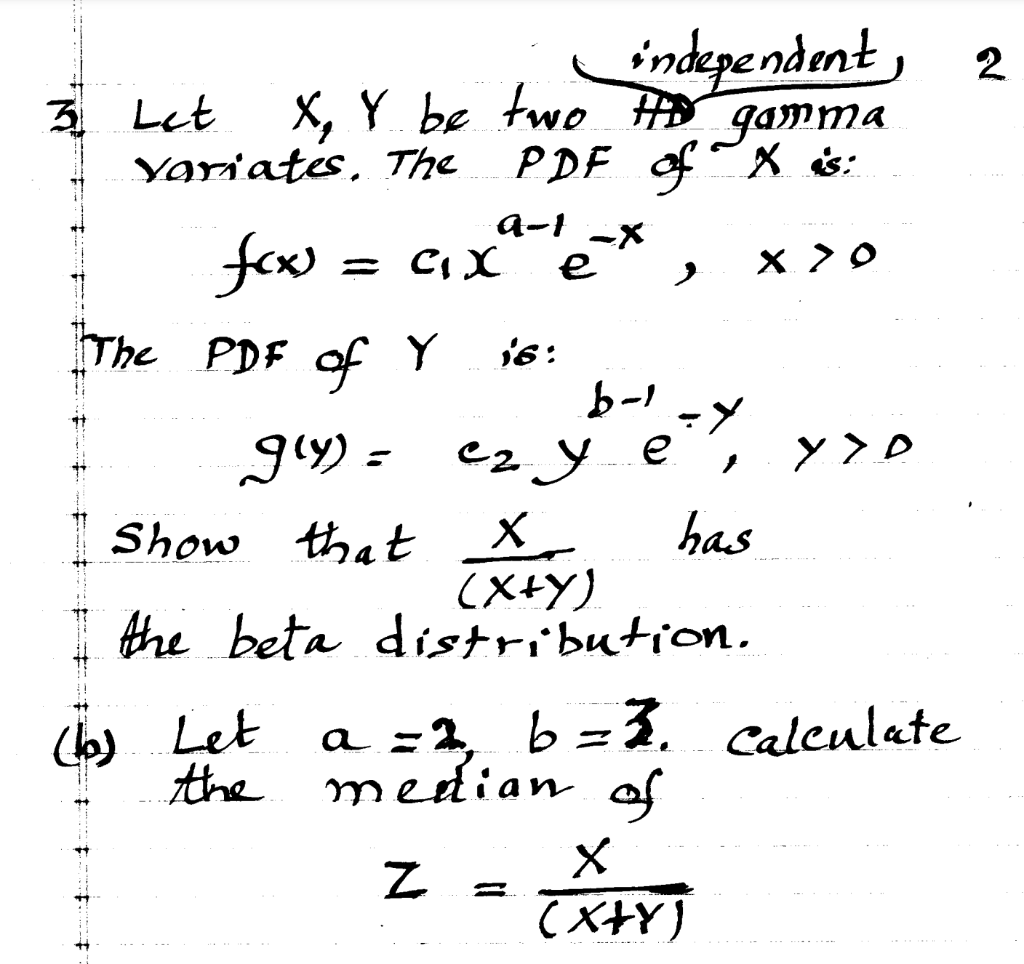 independent, 2
3. Let X, Y be two gamma
variates. The PDF of X is:
f(x) = c₁x^(a-1) e^(-x), x > 0
The PDF of Y is:
g(y) = c₂ y^(b-1) e^(-y), y > 0
Show that X/(X+Y) has
the beta distribution.
(b) Let a = 2, b = 3. Calculate
the median of
Z = X/(X+Y)